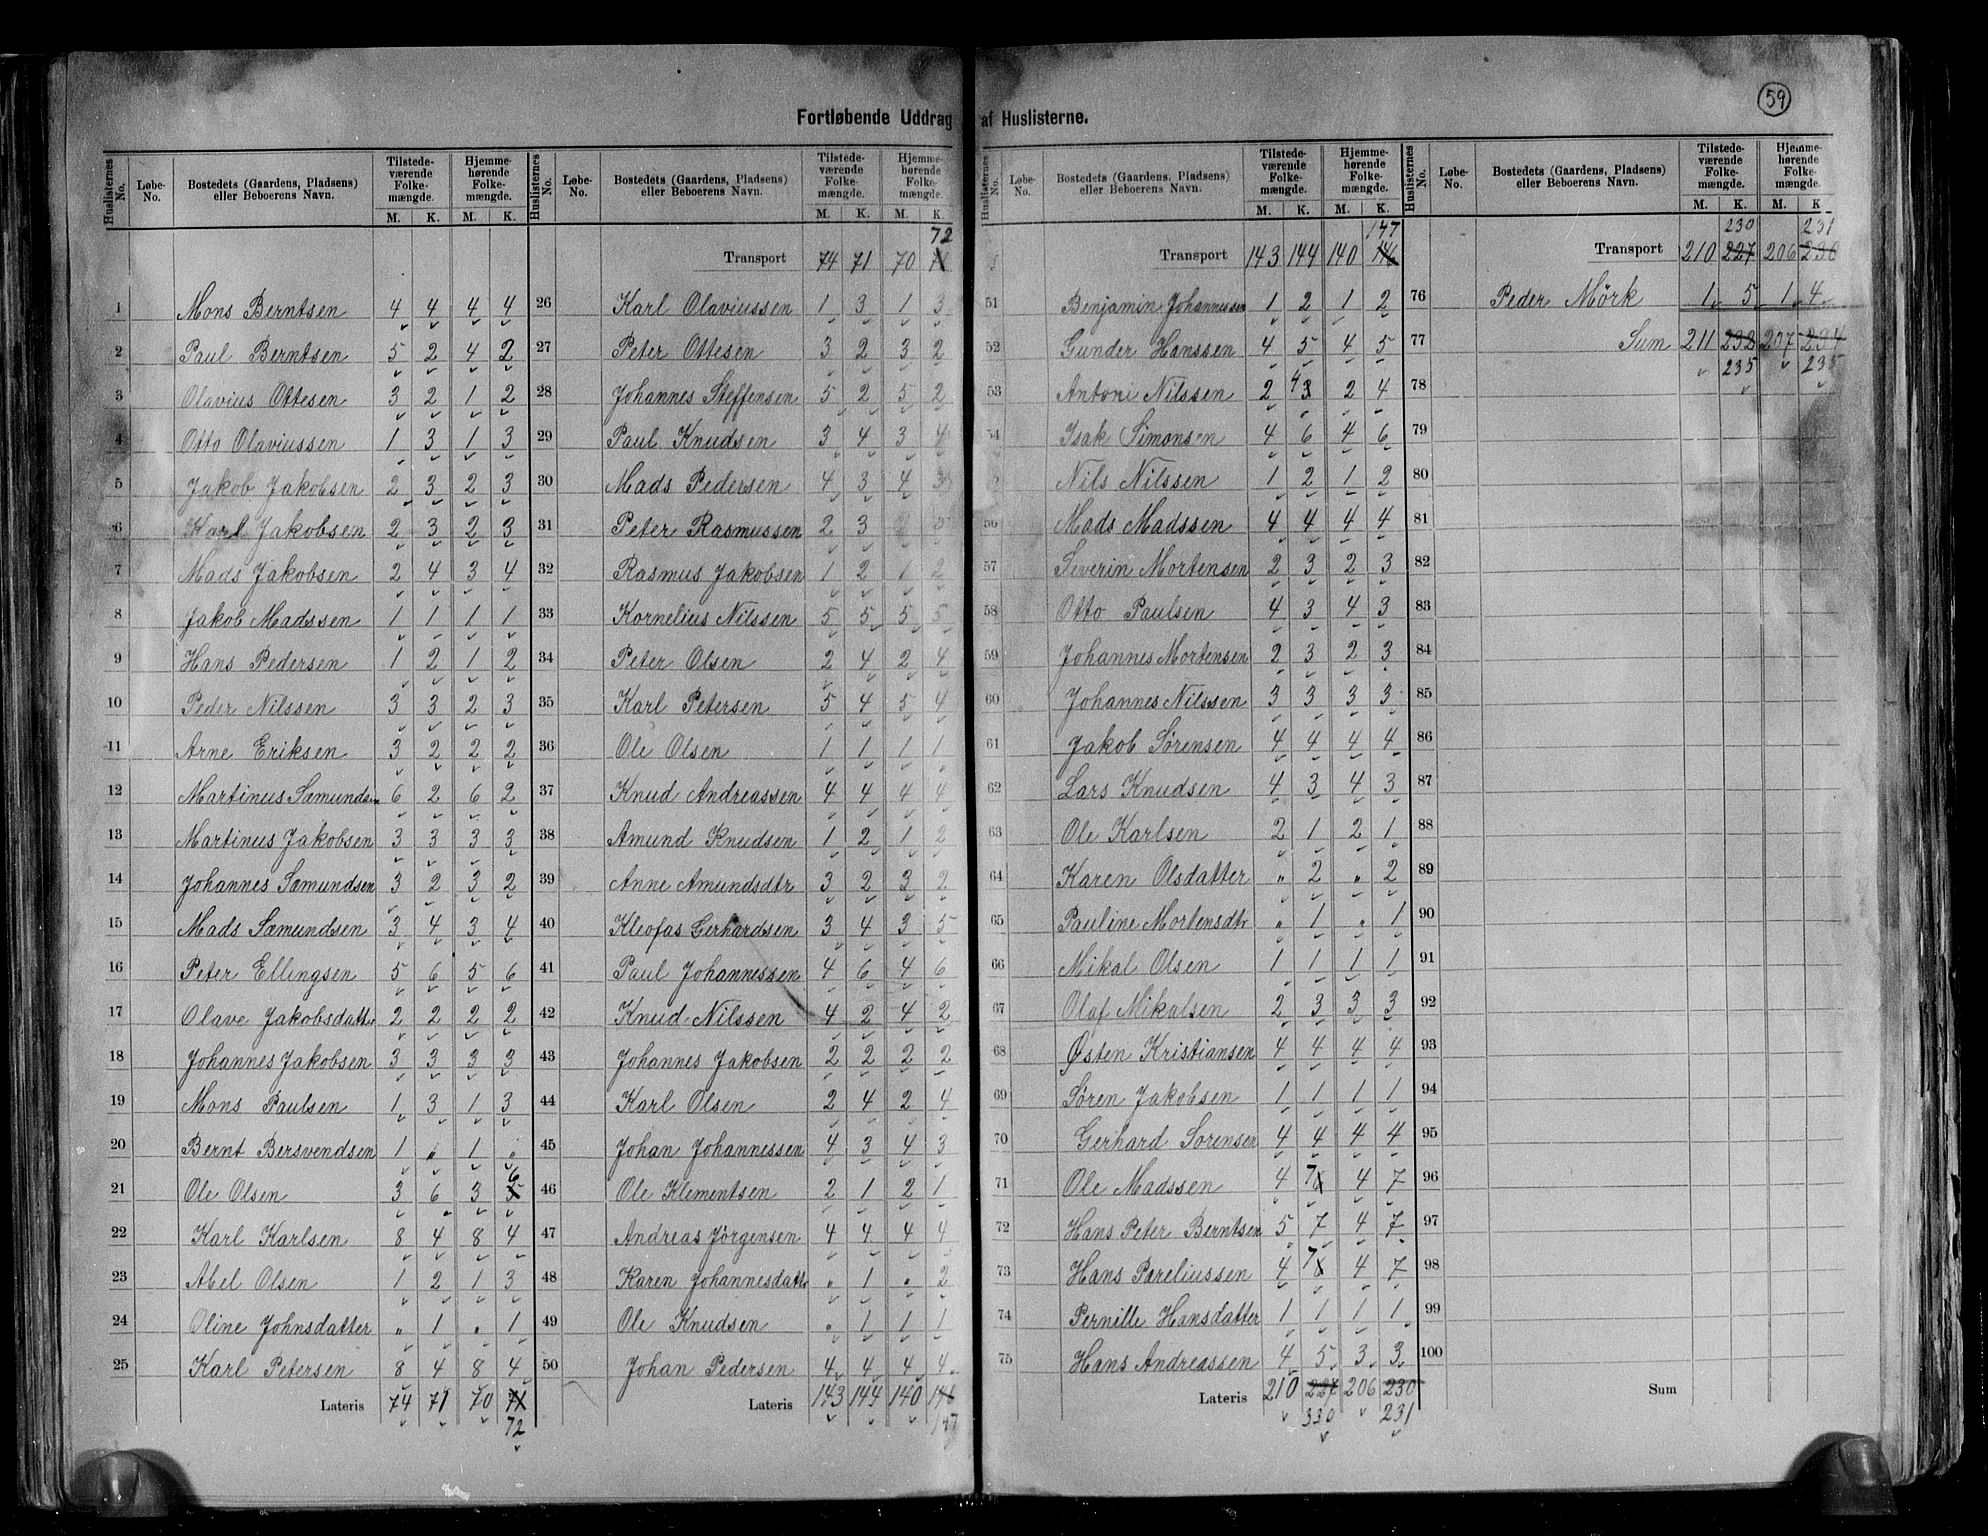 59
Fortløbende Uddrag af Huslisterne.
Huslisternes No. Løbe-No. Bostedets (Gaardens, Pladsens) eller Beboerens Navn. Tilstedeværende Folkemængde. M. K. Hjemmehørende Folkemængde. M. K.
1 Mons Berntsen 4 4 4 4
2 Paul Berntsen 5 2 4 2
3 Olavius Ottesen 3 2 1 2
4 Otto Olaviussen 1 3 1 3
5 Jakob Jakobsen 2 3 2 3
6 Karl Jakobsen 2 3 2 3
7 Mads Jakobsen 2 4 3 4
8 Jakob Madssen 1 1 1 1
9 Hans Pedersen 1 2 1 2
10 Peder Nilssen 3 3 2 3
11 Arne Eriksen 3 2 2 2
12 Martinus Sæmundsen 6 2 6 2
13 Martinus Jakobsen 3 3 3 3
14 Johannes Sæmundsen 3 2 3 2
15 Mads Sæmundsen 3 4 3 4
16 Peter Ellingsen 5 6 5 6
17 Olave Jakobsdatter 2 2 2 2
18 Johannes Jakobsen 3 3 3 3
19 Mons Paulsen 1 3 1 3
20 Bernt Bersvendsen 1 " 1 "
21 Ole Olsen 3 6 3 5 6
22 Karl Karlsen 8 4 8 4
23 Abel Olsen 1 2 1 3
24 Oline Johnsdatter " 1 " 1
25 Karl Petersen 8 4 8 4
Lateris 74 71 70 71
72
Huslisternes No. Løbe-No. Bostedets (Gaardens, Pladsens) eller Beboerens Navn. Tilstedeværende Folkemængde. M. K. Hjemmehørende Folkemængde. M. K.
72
Transport 74 71 70 71
26 Karl Olaviussen 1 3 1 3
27 Peter Ottesen 3 2 3 2
28 Johannes Steffensen 5 2 5 2
29 Paul Knudsen 3 4 3 4
30 Mads Pedersen 4 3 4 3
31 Peter Rasmussen 2 3
32 Rasmus Jakobsen 1 2 1 2
33 Kornelius Nilssen 5 5 5 5
34 Peter Olsen 2 4 2 4
35 Karl Petersen 5 4 5 4
36 Ole Olsen 1 1 1 1
37 Knud Andreassen 4 4 4 4
38 Amund Knudsen 1 2 1 2
39 Anne Amundsdtr 3 2 3 2
40 Kleofas Gerhardsen 3 4 3 5
41 Paul Johannessen 4 6 4 6
42 Knud Nilssen 4 2 4 2
43 Johannes Jakobsen 2 2 2 2
44 Karl Olsen 2 4 2 4
45 Johan Johannessen 4 3 4 3
46 Ole Klementsen 2 1 2 1
47 Andreas Jörgensen 4 4 4 4
48 Karen Johannesdatter " 1 " 2
49 Ole Knudsen " 1 1 1
50 Johan Pedersen 4 4 4 4
Lateris 143 144 140 146
147
Huslisternes No. Løbe-No. Bostedets (Gaardens, Pladsens) eller Beboerens Navn. Tilstedeværende Folkemængde. M. K. Hjemmehørende Folkemængde. M. K.
147
Transport 143 144 140 146
51 Benjamin Johannessen 1 2 1 2
52 Gunder Hanssen 4 5 4 5
53 Antoni Nilssen 2 4 3 2 4
54 Isak Simonsen 4 6 4 6
Nils Nilssen 1 2 1 2
56 Mads Madssen 4 4 4 4
57 Severin Mortensen 2 3 2 3
58 Otto Paulsen 4 3 4 3
59 Johannes Mortensen 2 3 2 3
60 Johannes Nilssen 3 3 3 3
61 Jakob Sørensen 4 4 4 4
62 Lars Knudsen 4 3 4 3
63 Ole Karlsen 2 1 2 1
64 Karen Olsdatter " 2 " 2
65 Pauline Mortensdtr " 1 " 1
66 Mikal Olsen 1 1 1 1
67 Olaf Mikalsen 2 3 3 3
68 Østen Kristiansen 4 4 4 4
69 Sören Jakobsen 1 1 1 1
70 Gerhard Sorensen 4 4 4 4
71 Ole Madssen 4 7 4 7
72 Hans Peter Berntsen 5 7 4 7
73 Hans Pareliussen 4 7 4 7
74 Pernille Hansdatter 1 1 1 1
75 Hans Andreassen 4 5 3 3
Lateris 210 227 206 230
330 231
Huslisternes No. Løbe-No. Bostedets (Gaardens, Pladsens) eller Beboerens Navn. Tilstedeværende Folkemængde. M. K. Hjemmehørende Folkemængde. M. K
230 231
Transport 210 227 206 230
76 Peder Mörk 1 5 1 4
77 Sum 211 232 207 234
235 235
78
79
80
81
82
83
84
85
86
87
88
89
90
91
92
93
94
95
96
97
98
99
100
Sum